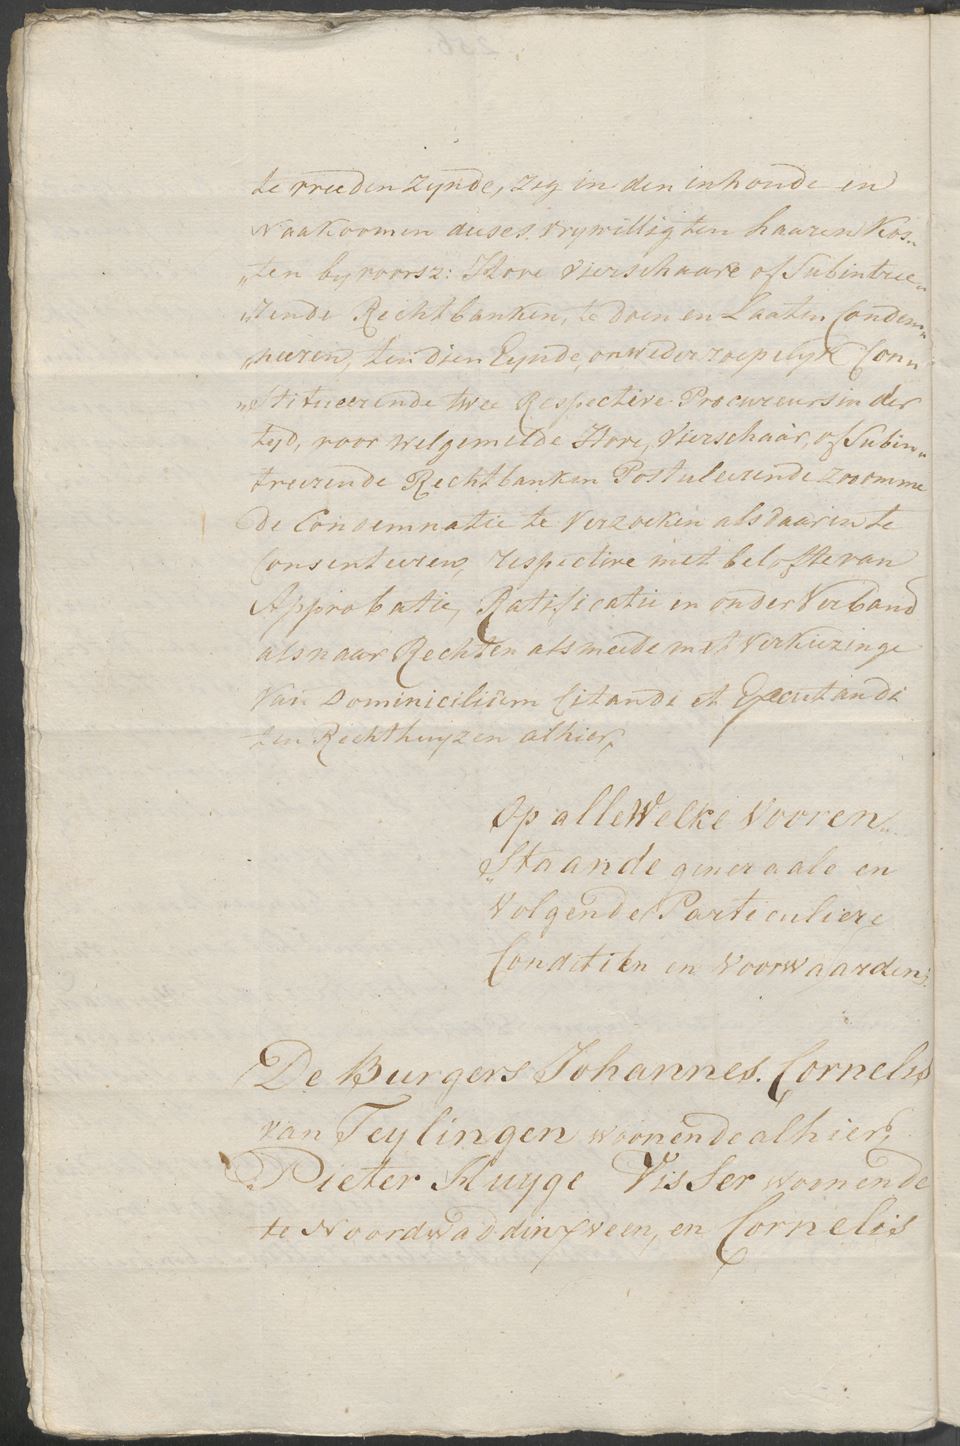 te vreeden zynde, zig in den inhoude en
Naakoomen deeses vrywilligten haaren Kos„
„ten by voorsz: Hove Vierschaare of Subintree„
„rende Rechtbanken, te doen en Laaten Condem„
„neeren, ten dien Eynde, onwederroepelyk Con„
„stitueerende twee Respective Procureurs in der
tyd, voor welgemelde Hove, Vierschaar, of Subin„
treerende Rechtbanken Postuleerende zoo omme
de Condemnatie te Verzoeken als daarin te
Consenteeren, respective met belofte van
Approbatie, Ratificatie en onder Verband
als naar Rechten als meede met Verkiezinge
Van Dominicilium Citandi et Executandi
ten Rechthuyzen alhier,
Op alle Welke Vooren„
„Staande generaale en
Volgende Particuliere
Conditien en Voorwaarden;
De Burgers Johannes. Cornelis
van Teylingen woonende alhier,
Pieter Kuyge Visser woonende
te Noordwaddinxveen, en Cornelis